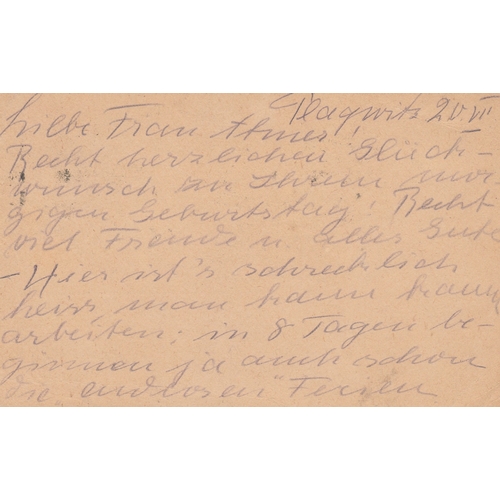 Plagwitz 20. VII
Liebe Frau
Recht herzlichen Glück-
wunsch zu Ihrem mor
gigen Geburtstag! Recht
viel Freude u alles Gute
- Hier ist's schrecklich
heiss, man kann kaum
arbeiten; in 8 Tagen be-
ginnen ja auch schon
die "endlosen" Ferien